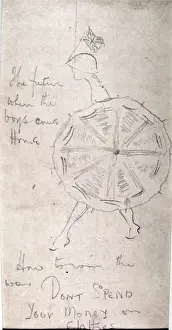 The future
when the
boys come
Home
How to win the
war DONT SPEND
YOUR MONEY on
clothes